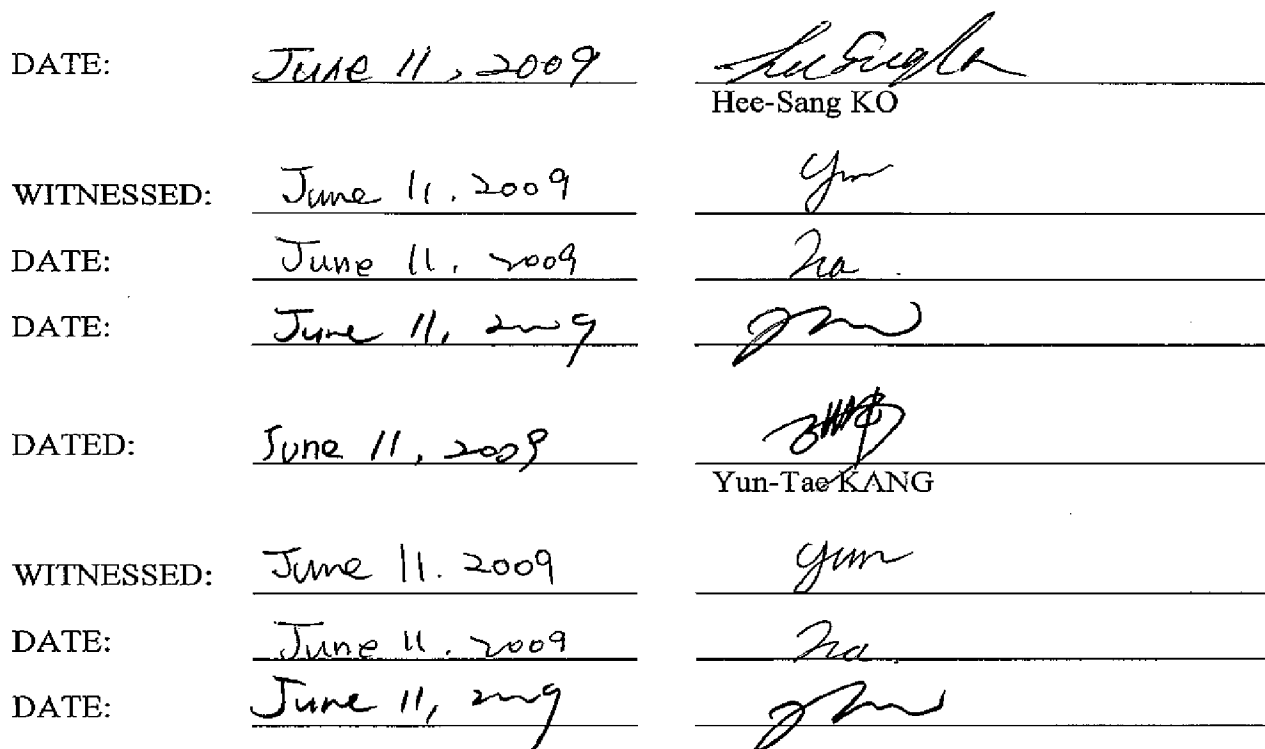 DATE: June 11, 2009
Hee-Sang KO
WITNESSED: June 11. 2009 Yun
DATE: June 11, 2009 Na
DATE: June 11, 2009
DATED: June 11, 2009
Yun-Tae KANG
WITNESSED: June 11. 2009 Yun
DATE: June 11. 2009 Na
DATE: June 11, 2009